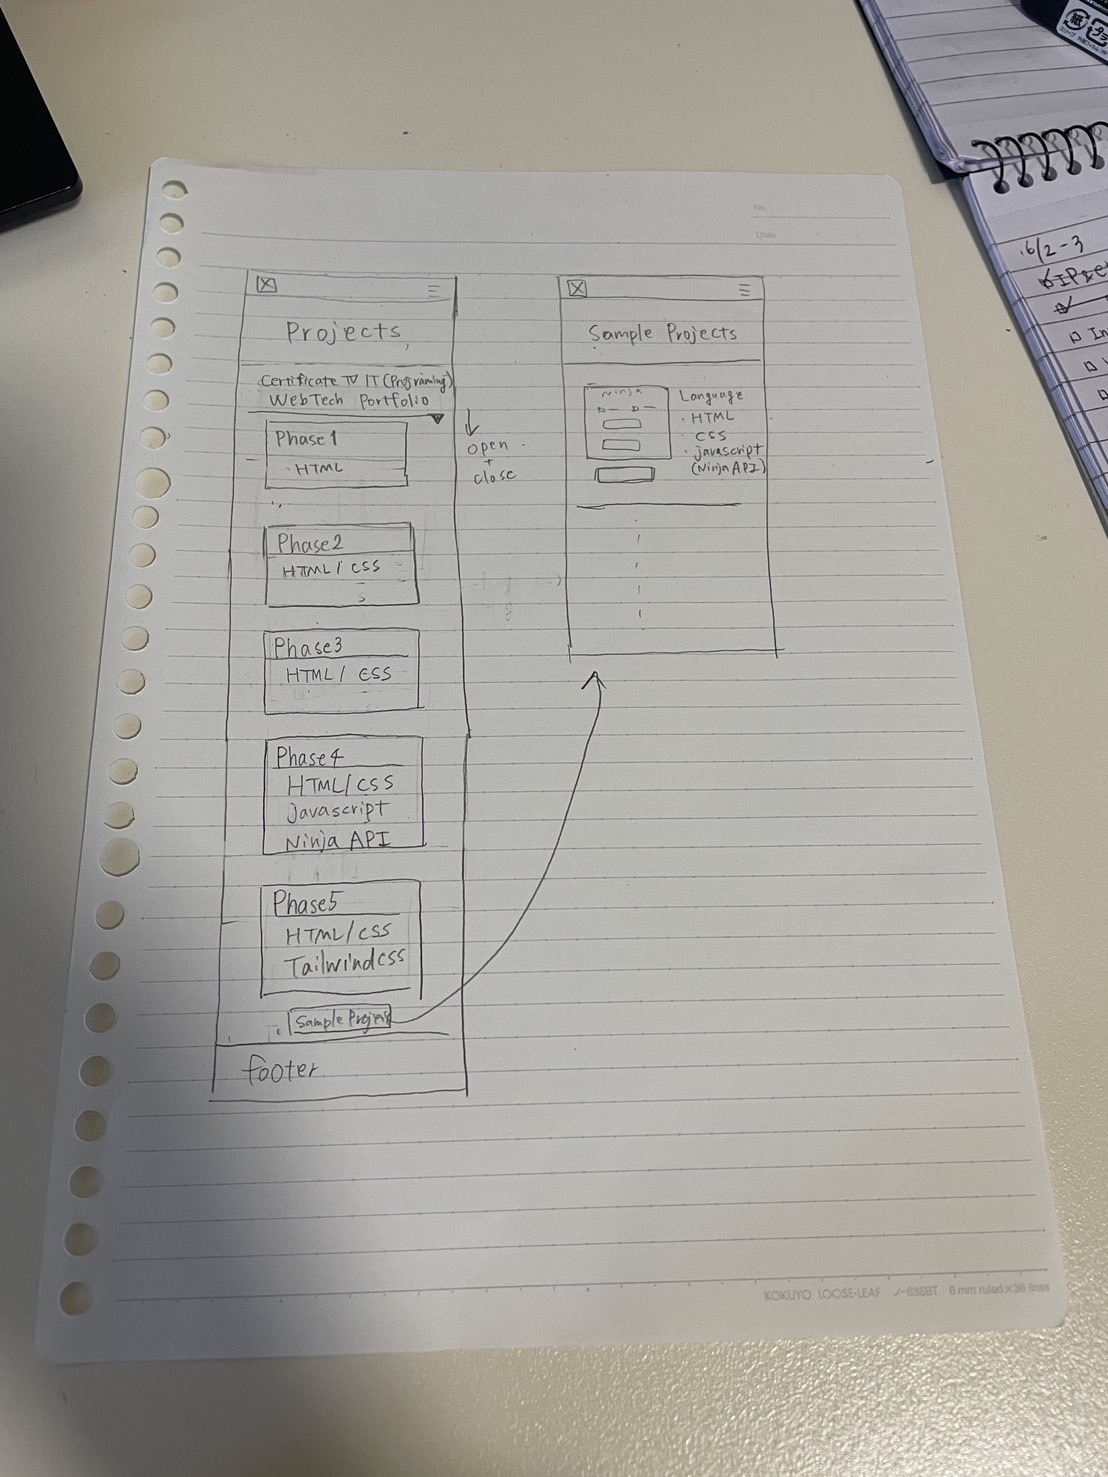 No.
Date
Projects
Certificate IV IT (Programing)
WebTech Portfolio
open
+
close
Phase1
· HTML
Phase2
HTML / CSS
Phase3
HTML / CSS
Phase4
HTML/CSS
javascript
Ninja API
Phase5
HTML/CSS
Tailwindcss
Sample Project
footer
Sample Projects
Ninja
Language
· HTML
CSS
· javascript
(Ninja API)
6/2-3
KOKUYO LOOSE-LEAF ノ-836BT 6 mm ruled × 36 lines